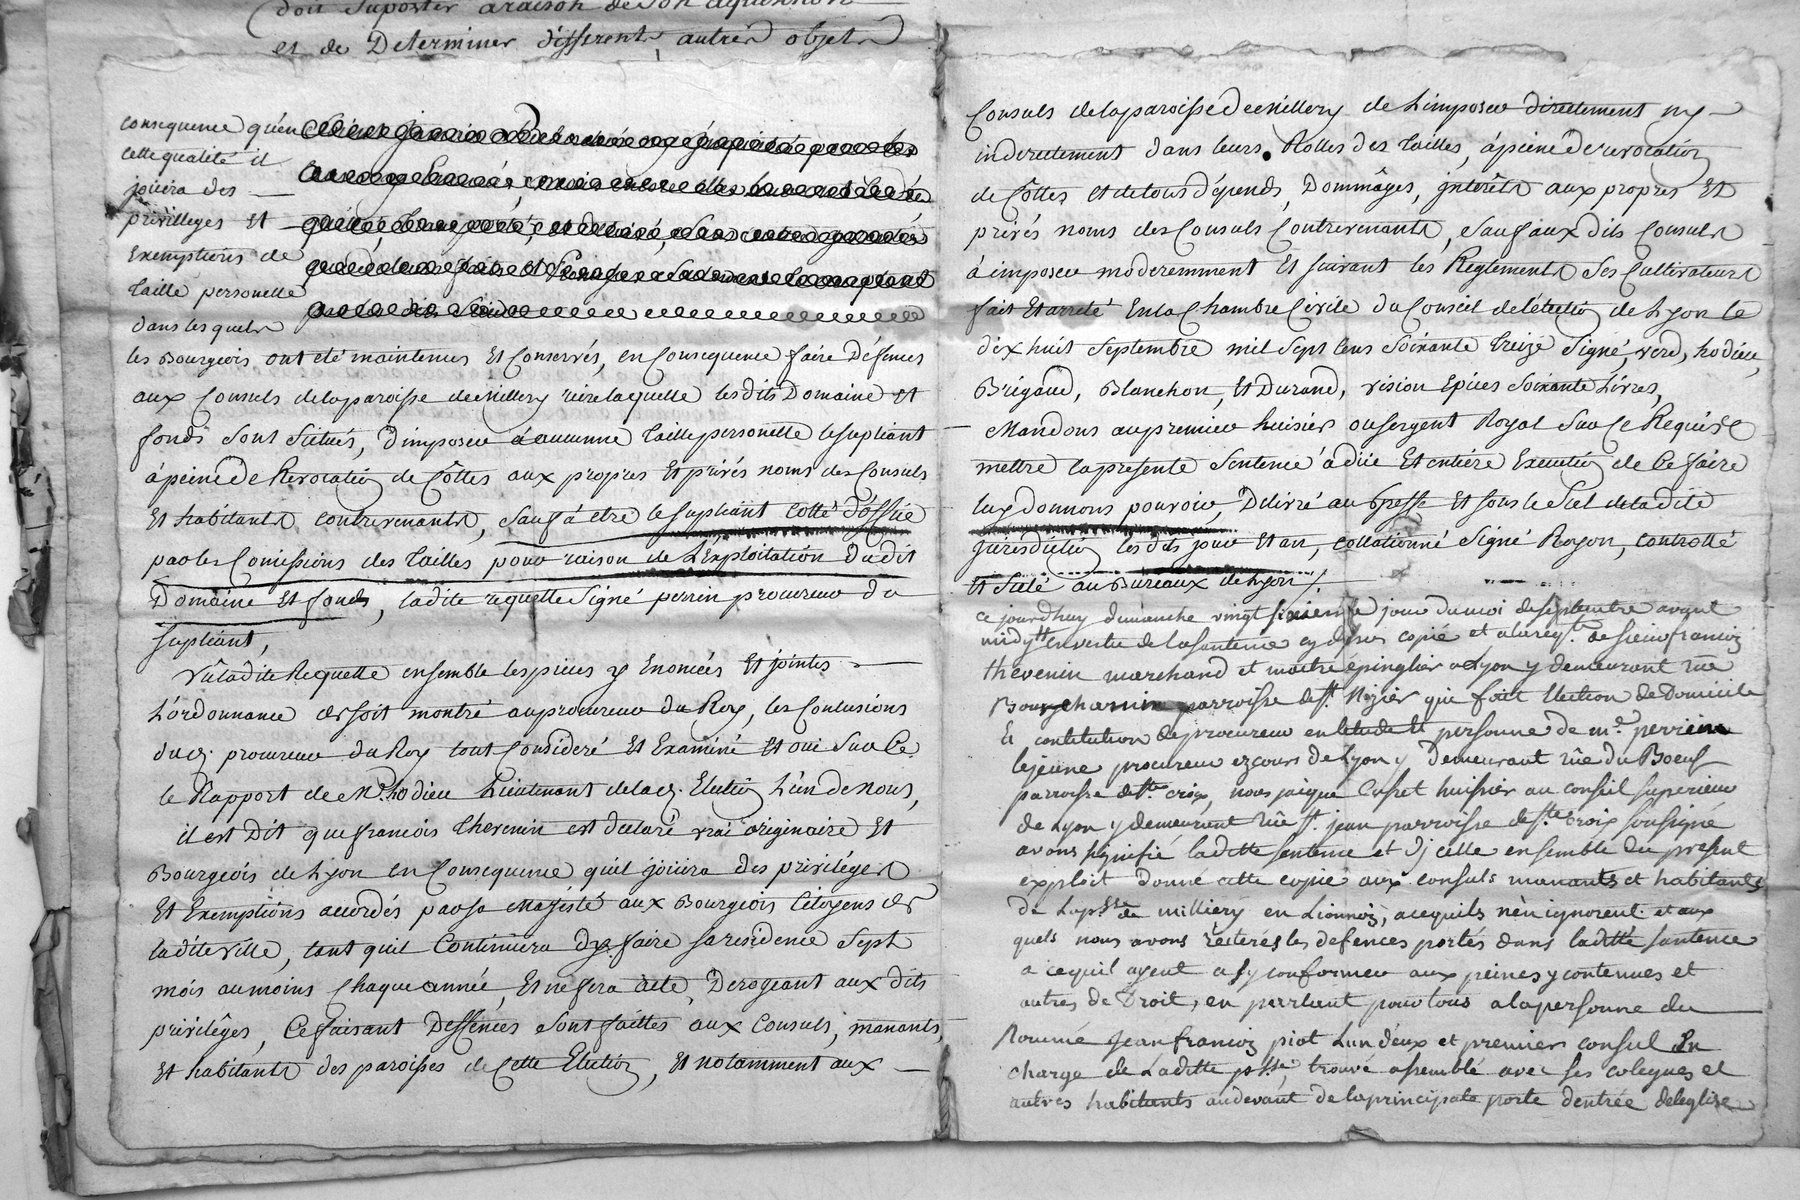 doit suporter araison de son aquisition
et de Determiner differents autres objets
consequence qu'en
cette qualité il
joüira des
privilleges et
Exemptions de
taille personelle
dans lesquels
les Bourgeois ont été maintenus et Conservés, en Consequence faire Défences
aux Consuls delaparoisse demillery rierelaquelle lesdits Domaine et
fonds sont situés, d'imposer àaucunne taille personelle lesupliant
àpeine de Revocation de Côttes aux propres et privés noms des Consuls
et habitants contrevenants, sauf à etre lesupliant cotté d'office
parles Comissions des tailles pour raison de L'Exploitation Dudit
Domaine et fonds, ladite requette signé perrin procureur du
supliant,
Vû ladite Requette ensemble lespieces y Enoncées et jointes
L'ordonnance de soit montré auprocureur du Roy, les Conclusions
dud. procureur du Roy tout Consideré et Examiné et oui sur Ce
le Rapport de Mr. hodieu Lieutenant delad. Election L'un de nous,
il est Dit que francois thevenin est declaré vrai originaire et
Bourgeois de Lyon en Consequence quil joüira des privilèges
et Exemptions accordés parsa Majesté aux Bourgeois Citoyens de
laditeville, tant quil Continüera dy faire sa residence sept
mois aumoins Chaque année, et ne fera acte Derogeant aux dits
privilèges, Ce faisant Deffences sont faittes aux Consuls, manants,
et habitants des paroisses de Cette Election, et notamment aux
Consuls delaparoisse demillery de L'imposer directement ny
indirectement dans leurs Rolles des tailles, àpeine de revocation
de Côttes et detous dépends, Dommâges, interêts aux propres et
privés noms des Consuls Contrevenants, sauf aux dits Consuls
à imposer moderemment et suivant les Reglements ses Cultivateurs
fait et arreté en la Chambre Civile du Conseil de l'élection de Lyon le
dix huit septembre mil sept cens soixante treize signé, verd, hodieu,
Brigaud, Blanchon, et Durand, vision epices soixante Livres,
Mandons aupremier huisier ousergent Royal sur Ce Requis
mettre lapresente sentence adüe et entière execution de Ce faire
luy donnons pouvoir, Delivré au Greffe et sous le scel deladite
jurisdiction les dits jour et an, collationné signé Royon, controllé
et scelé au Bureaux de Lyon /.
ce jourdhuy dimanche vingt sixieme jour dumoi deseptembre avant
midy en vertu de lasentence cy dessus copié et alareqt. de sieur francois
thevenin marchand et maitre épinglier a Lyon y demeurant rüe
Bourgchanin parroisse de st. Nizier qui fait Election de Domicile
et contitution de procureur en letude et personne de me. perrin
lejeune procureur ez cours de Lyon y demeurant rüe du Boeuf
parroisse de ste. croix, nous jacque Cusset huissier au conseil superieur
de Lyon y demeurant rüe st. jean parroisse de ste. croix soussigné
avons signifié laditte sentence et d'icelle ensemble du present
exploit donné cette copie aux consuls manants et habitants
de Lapsse. de milliery en Lionnois, acequils n'en ignorent et aux
quels nous avons réiterés les defences portés dans laditte santence
a cequil ayent a sy conformer aux peines y contenues et
autres de Droit, en parlant pour tous alapersonne du
Nommé Jean francois piot Lun deux et premier consul En
charge de Laditte psse. trouvé assemblé avec ses colegues et
autres habitants audevant de laprincipale porte dentrée deleglise